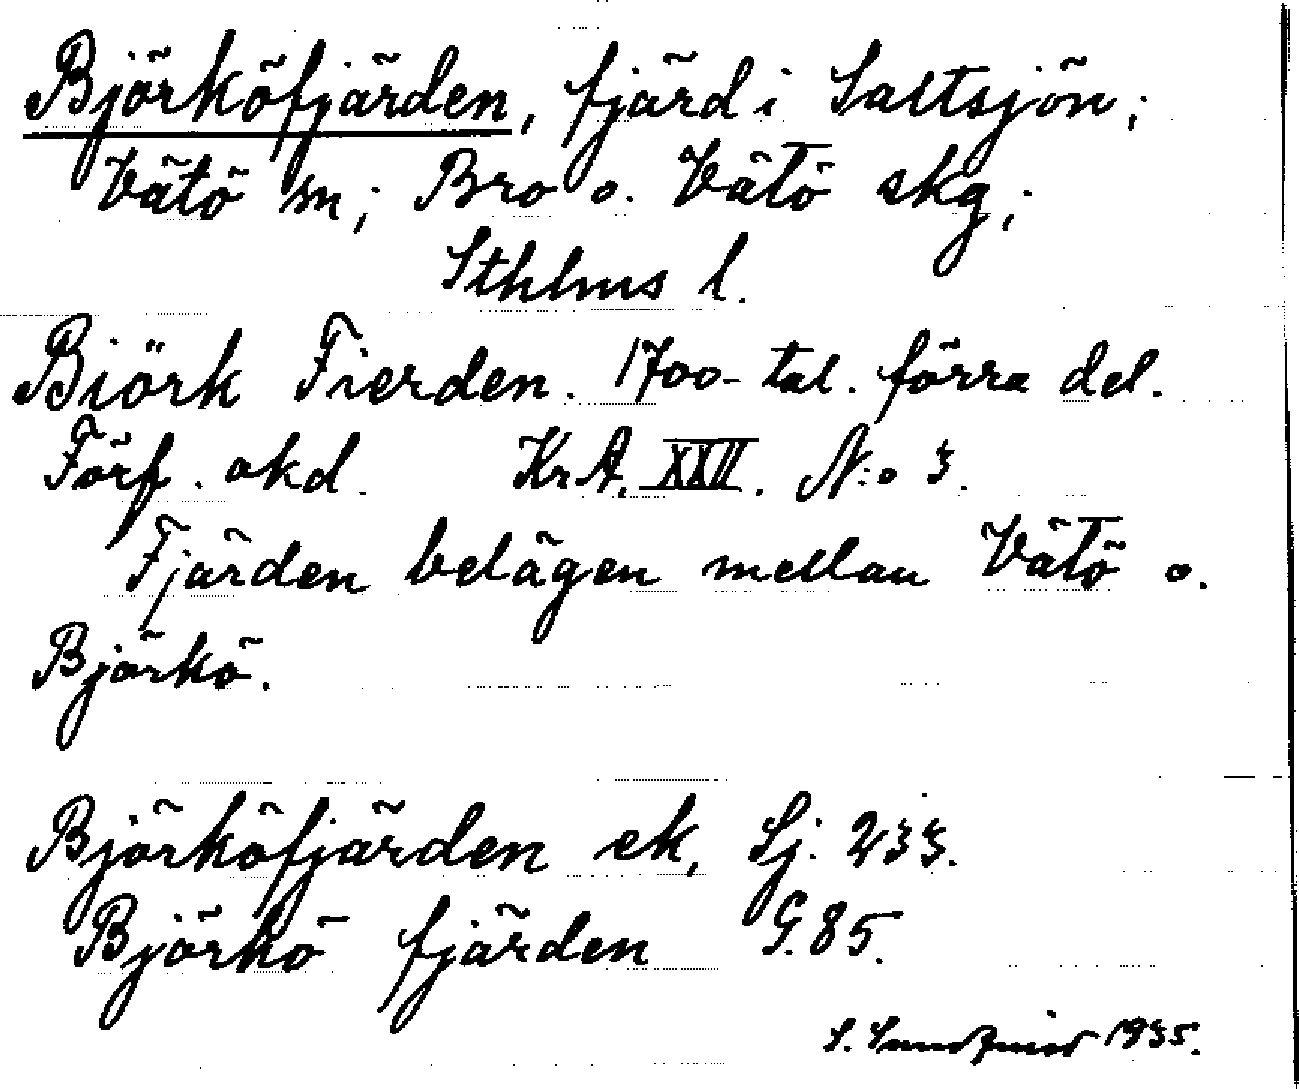 Björköfjärden, fjärd i Saltsjön;
Vätö sn; Bro o. Vätö skg;
Sthlms l.
Biörk Fierden. 1700-tal. förra del.
Förf. okd. Kr A. XXII. N:o 3.
Fjärden belägen mellan Vätö o.
Björkö.
Björköfjärden ek, Sj. 233.
Björkö fjärden G. 85.
S. 1935.